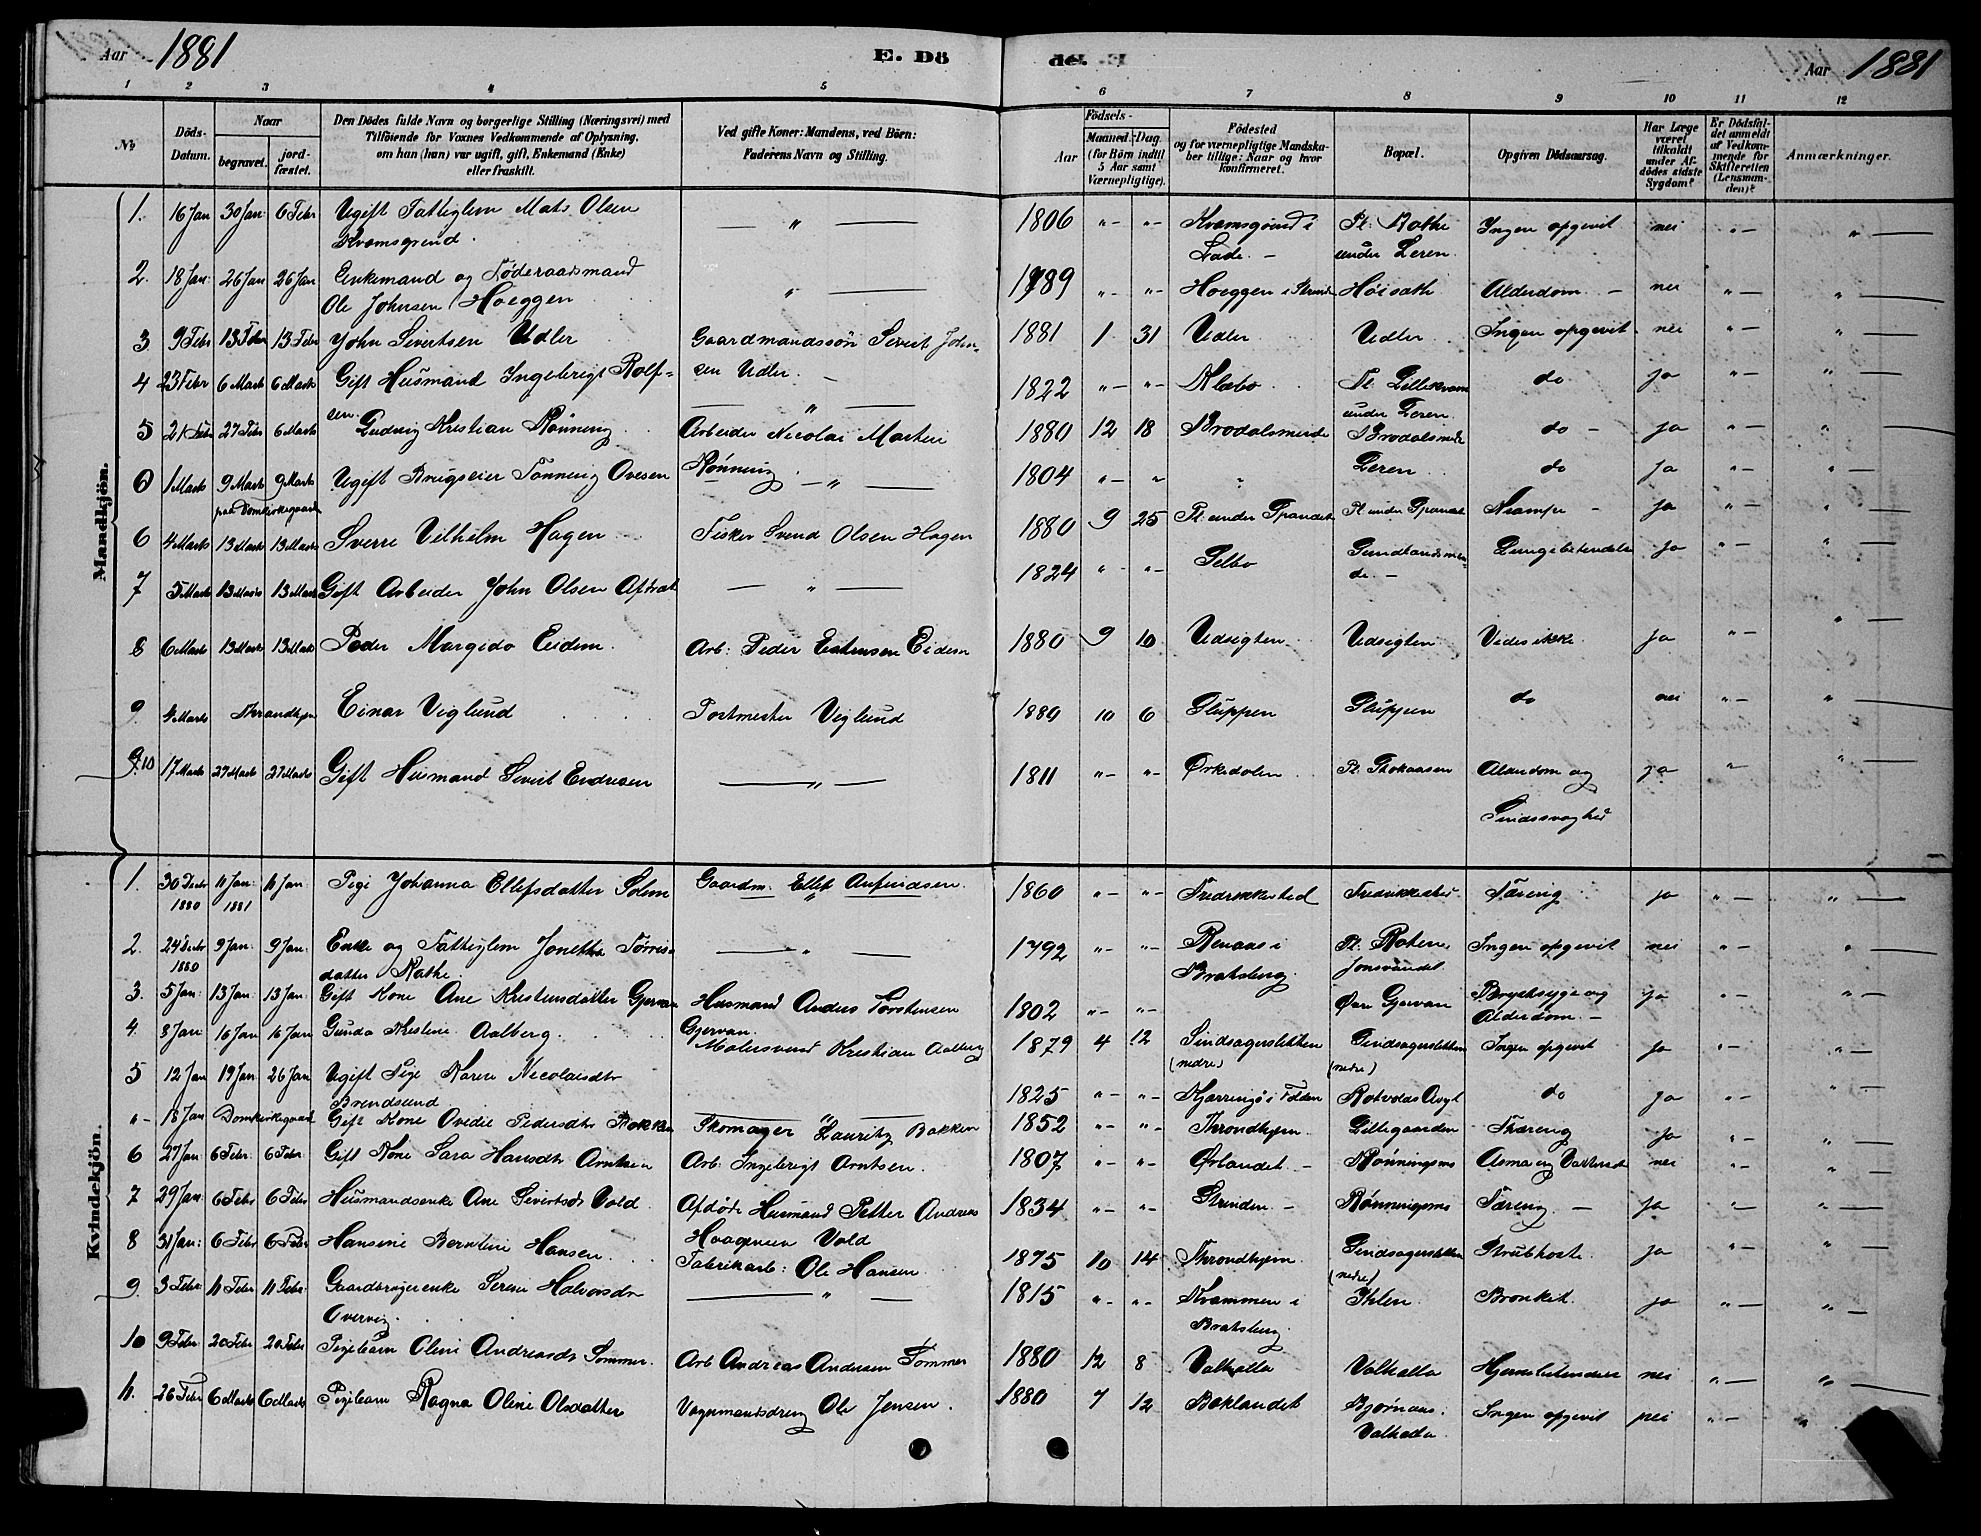 Aar 1881 E. Dö
de. Aar 1881
1 2 3 4 5 6 7 8 9 10 11 12
No
Döds-Datum.
Naar
begravet.
jord-fæstet.
Den Dödes fulde Navn og borgerlige Stilling (Næringsvei) med
Tilföiende for Voxnes Vedkommende af Oplysning,
om han (hun) var ugift, gift, Enkemand (Enke)
eller fraskilt.
Ved gifte Koner: Mandens, ved Börn:
Faderens Navn og Stilling.
Födsels-
Aar
Maaned. Dag.
(for Börn indtil
5 Aar samt
Værnepligtige).
Födested
og for værnepligtige Mandska-
ber tillige: Naar og hvor
konfirmeret.
Bopæl.
Opgiven Dödsaarsag.
Har Læge
været
tilkaldt
under Af-
dödes sidste
Sygdom?
Er Dödsfal-
det anmeldt
af Vedkom-
mende for
Skifteretten
(Lensman-
den)?
Anmærkninger.
Mandkjön.
1. 16 Jan 30 Jan: 6 Febr Ugift Fattiglem Mats Olsen — " — 1806 "- "- Kvamsgrind i Pl. Rathe Ingen opgivet nei "- "
Kvamsgrind. Lade. - under Leren.
2. 18 Jan: 26 Jan 26 Jan Enkemand og Föderaadsmand " — 1789 "- "- Hoeggen i Strinde Höiseth Alderdom - nei "- "
Ole Johnsen Hoeggen
3. 9 Febr 13 Febr 13 Febr John Sivertsen Udler Gaardmandssön Sivert John- 1881 1 31 Udler Udler Ingen opgivet nei "- "
sen Udler. -
4 23 Febr 6 Marts 6 Marts Gift Husmand Ingebrigt Rolf- " — 1822 "- "- Klæbo Pl. Lillekvam do ja "- "
sen. under Leren.
5 21 Febr 27 Febr 6 Marts Ludvig Kristian Rönning Arbeider Nicolai Martin 1880 12 18 Brodalsminde Brodalsminde do - ja "- "
Rönning.
6 1 Marts 9 Marts 9 Marts Ugift Brugseier Fanning Ovesen - " — 1804 "- " " Leren do ja "- "
paa Domkirkegaarden
6 4 Marts 13 Marts 13 Marts Sverre Vilhelm Hagen Fisker Svend Olsen Hagen 1880 9 25 Pl. under Spandet Pl. under Spandet Krampe - ja "- "
7 5 Marts 13 Marts 13 Marts Gift Arbeider John Olsen — " — 1824 " "- Selbo Lungebetendelse ja "- "
8 6 Marts 13 Marts 13 Marts Peder Margido Eidem. Arb: Peder Eidem 1880 9 10 Udsigten Udsigten Vides ikke ja "- "
9. 4 Marts Thrandhjem Einar Viglund Postmester Viglund 1880 10 6 Sluppen Sluppen do nei "- "
10 17 Marts 27 Marts 27 Marts Gift Husmand Sivert Endresen — " — 1811 "- "- Ørkedalen Pl. Alderdom og ja " "
Sindssvaghed
Kvindekjön.
1. 30 Decbr 11 Jan: 11 Jan: Pige Johanna Ellefsdatter Solem Gaardm. Ellef Arfindsen. 1860 "- "- Fredrikkested Fredrikkested Tæring ja "- "
1880 1881
2. 24 Decbr 9 Jan: 9 Jan: Enke og Fattiglem Jonetta Törris- — " — 1792 "- "- Renaas i Pl. Rathe v. Ingen opgivet nei "- "
1880 datter Rathe. Bratsberg. Jonsvandet.
3. 5 Jan: 13 Jan: 13 Jan: Gift Kone Ane Kristensdatter Gjervan Husmand Anders Torstensen 1802 "- "- Øvre Gjervan Brystsyge og ja "- "
Gjervan. Alderdom. -
4. 8 Jan 16 Jan 16 Jan Gunda Kristine Aalberg. Malersvend Kristian Aalberg 1879 4 12 Sindsagersletten Sindsagersletten Ingen opgivet ja "- "
(nedre) (nedre)
5 12 Jan 19 Jan 26 Jan Ugift Pige Karen Nicolaisdtr 1825 "- "- Kjerringö i Folden Rotvolds Asyl do ja "- "
Brendsund
"- 18 Jan Domkirkegaard Gift Kone Ovedie Pedersdtr Bakken Skomager Lauritz Bakken 1852 "- "- Throndhjem Lillegaarden Tæring ja "- "
6 27 Jan 6 Febr. 6 Febr Gift Kone Sara Hansdtr Arntsen Arb: Ingebrigt Arntsen. 1807 "- "- Ørlandet. - Rönningsms Asma og Vattersot nei "- "
7 29 Jan 6 Febr 6 Febr Husmandsenke Ane Sivertsdtr Vold Afdöde Husmand Petter Andreas 1834 "- "- Strinden - Rönningsms Tæring. - ja "- "
Haagensen Vold
8 31 Jan: 6 Febr 6 Febr Hansine Berntine Hansen. Fabrikarb: Ole Hansen 1875 10 14 Throndhjem Sindsagersletten Strubhoste. ja "- "
(nedre)
9. 3 Febr 11 Febr 11 Febr Gaardbrugerenke Seren Halvorsdtr — " — 1815 "- "- Krammen i Ihlen. Bronkit. ja "- "
Overvig. Bratsberg.
10 9 Febr 20 Febr 20 Febr Pigebarn Oline Andreasdtr Tommer. Arb Andreas Andersen Tommer 1880 12 8 Valhalla Valhalla Hjernebetendelse nei "- "
11. 26 Febr 6 Marts 6 Marts Pigebarn Ragna Oline Olsdatter Vognmandsdreng Ole Jensen. 1880 7 12 Baklandet Bjørnaas i Ingen opgivet nei "- "
Valhalla.